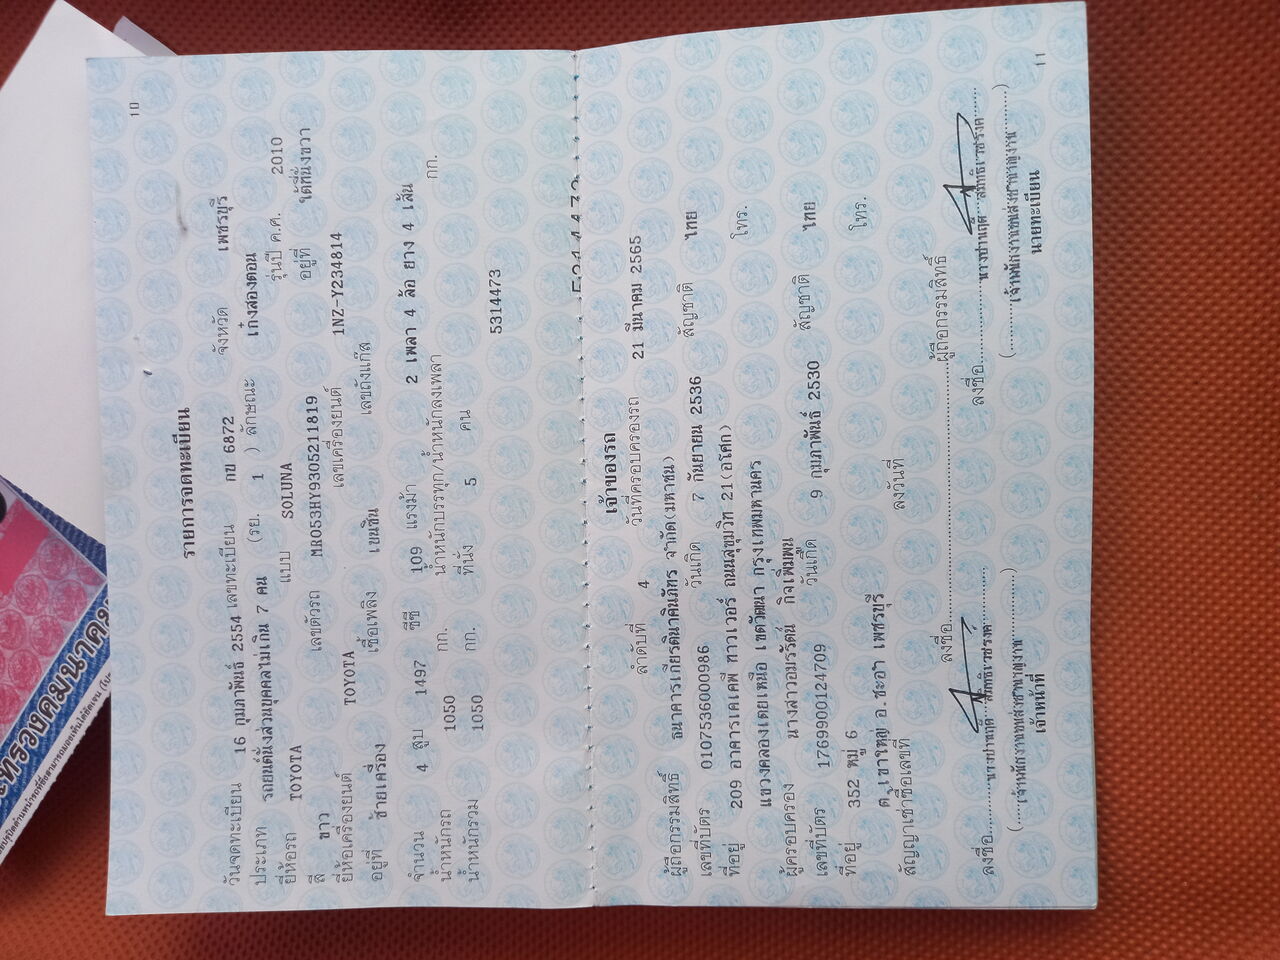 10
รายการจดทะเบียน
วันจดทะเบียน 16 กุมภาพันธ์ 2554 เลขทะเบียน กข 6872 จังหวัด เพชรบุรี
ประเภท รถยนต์นั่งส่วนบุคคลไม่เกิน 7 คน (รย. 1 ) ลักษณะ เก๋งสองตอน
ยี่ห้อรถ TOYOTA แบบ SOLUNA รุ่นปี ค.ศ. 2010
สี ขาว เลขตัวรถ MR053HY9305211819 อยู่ที่ ใต้ที่นั่งขวา
ยี่ห้อเครื่องยนต์ TOYOTA เลขเครื่องยนต์ 1NZ-Y234814
อยู่ที่ ซ้ายเครื่อง เชื้อเพลิง เบนซิน เลขถังแก๊ส
จำนวน 4 สูบ 1497 ซีซี 109 แรงม้า 2 เพลา 4 ล้อ ยาง 4 เส้น
น้ำหนักรถ 1050 กก. น้ำหนักบรรทุก/น้ำหนักลงเพลา กก.
น้ำหนักรวม 1050 กก. ที่นั่ง 5 คน
5314473
เจ้าของรถ
ลำดับที่ 4 วันที่ครอบครองรถ 21 มีนาคม 2565
ผู้ถือกรรมสิทธิ์ ธนาคารเกียรตินาคินภัทร จำกัด(มหาชน)
เลขที่บัตร 0107536000986 วันเกิด 7 กันยายน 2536 สัญชาติ ไทย
ที่อยู่ 209 อาคารเคเคพี ทาวเวอร์ ถนนสุขุมวิท 21(อโศก) โทร.
แขวงคลองเตยเหนือ เขตวัฒนา กรุงเทพมหานคร
ผู้ครอบครอง นางสาวอมรรัตน์ กิจเพิ่มพูน
เลขที่บัตร 1769900124709 วันเกิด 9 กุมภาพันธ์ 2530 สัญชาติ ไทย
ที่อยู่ 352 หมู่ 6 โทร.
ต.เขาใหญ่ อ.ชะอำ เพชรบุรี
สัญญาเช่าซื้อเลขที่ ลงวันที่
ลงชื่อ ผู้ถือกรรมสิทธิ์
ลงชื่อ ลงชื่อ
เจ้าหน้าที่ นายทะเบียน
11